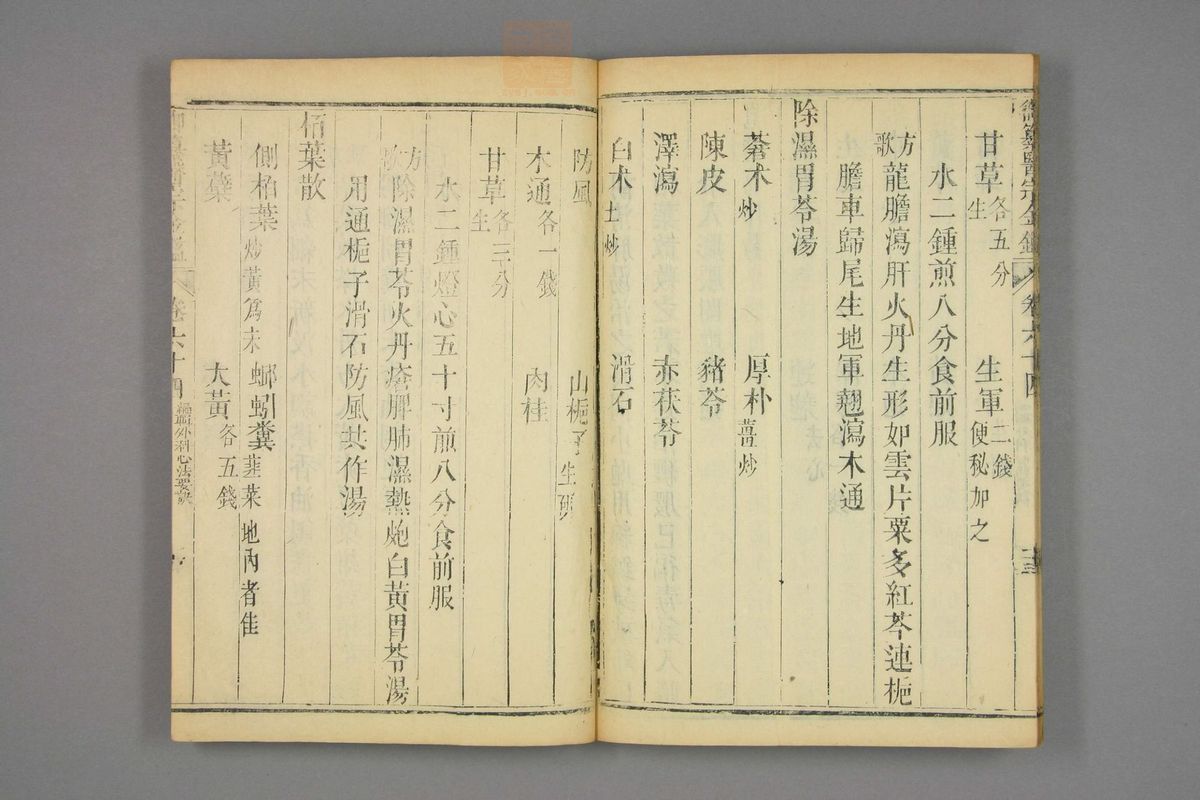 御纂醫宗金鑑 卷六十四
甘草生 各五分 生軍二錢便秘加之
水二鍾煎八分食前服
方歌 龍膽瀉肝火丹生形如雲片粟多紅芩連梔
膽車歸尾生地軍翹瀉木通
除濕胃苓湯
蒼朮炒 厚朴薑炒
陳皮 豬苓
澤瀉 赤茯苓
白朮土炒 滑石
防風 山梔子生研
木通各一錢 肉桂
甘草生各三分
水二鍾燈心五十寸煎八分食前服
方歌 除濕胃苓火丹瘡脾肺濕熱疱白黃胃苓湯
用通梔子滑石防風共作湯
栢葉散
側柏葉炒黃爲末 蚯蚓糞韮菜地內者佳
黃蘗 大黃各五錢
卷六十四 編輯外科心法要訣